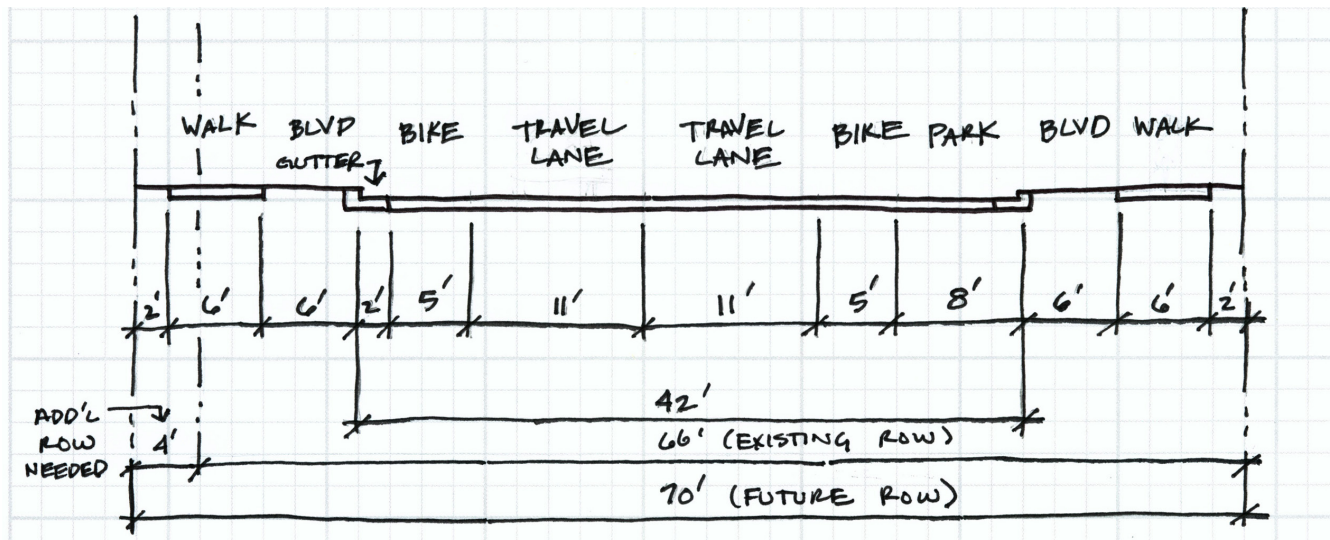 WALK BLVD BIKE TRAVEL LANE TRAVEL LANE BIKE PARK BLVD WALK
GUTTER
2' 6' 6' 2' 5' 11' 11' 5' 8' 6' 6' 2'
ADD'L
ROW
NEEDED
4'
42'
66' (EXISTING ROW)
70' (FUTURE ROW)